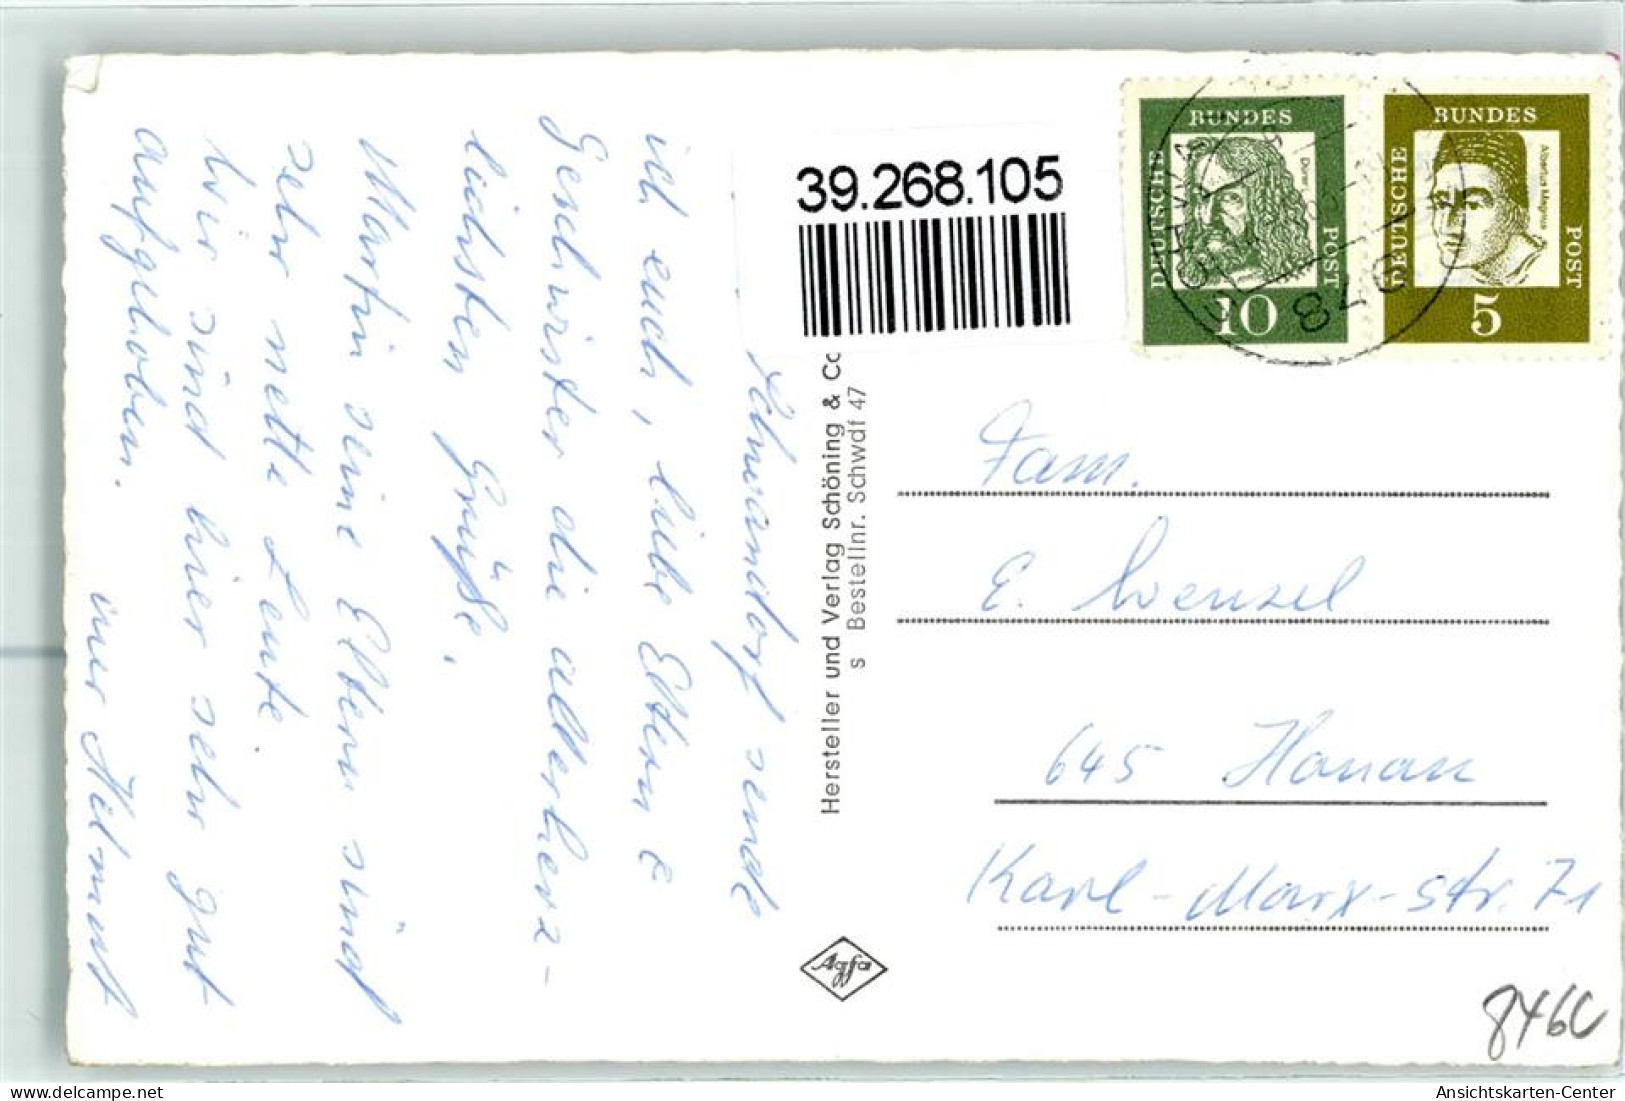 Schwandorf sende
ich euch, liebe Eltern &
Geschwister die allerherz-
lichsten Grüße.
Martin seine Eltern sind
sehr nette Leute.
Wir sind hier sehr gut
aufgehoben.
euer Helmut
39.268.105
Hersteller und Verlag Schöning & Co
s Bestellnr. Schwdf 47
Agfa
DEUTSCHE BUNDES POST
Dürer
10
DEUTSCHE BUNDES POST
Albertus Magnus
5
846
Fam.
E. Wenzel
645 Hanau
Karl-Marx-Str. 71
Ansichtskarten-Center